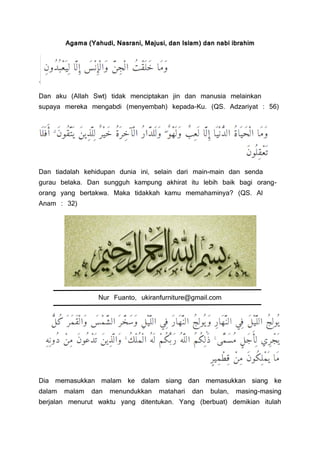 Agama (Yahudi, Nasrani, Majusi, dan Islam) dan nabi ibrahim
وَمَا خَلَقْتُ الْجِنَّ وَالْإِنْسَ إِلَّا لِيَعْبُدُونِ
Dan aku (Allah Swt) tidak menciptakan jin dan manusia melainkan
supaya mereka mengabdi (menyembah) kepada-Ku. (QS. Adzariyat : 56)
وَمَا الْحَيَاةُ الدُّنْيَا إِلَّا لَعِبٌ وَلَهْوٌ ۖ وَلَلدَّارُ الْآخِرَةُ خَيْرٌ لِلَّذِينَ يَتَّقُونَ ۗ أَفَلَا
تَعْقِلُونَ
Dan tiadalah kehidupan dunia ini, selain dari main-main dan senda
gurau belaka. Dan sungguh kampung akhirat itu lebih baik bagi orang-
orang yang bertakwa. Maka tidakkah kamu memahaminya? (QS. Al
Anam : 32)
بسم الله الرحمن الرحيم
Nur Fuanto, ukiranfurniture@gmail.com
يُولِجُ اللَّيْلَ فِي النَّهَارِ وَيُولِجُ النَّهَارَ فِي اللَّيْلِ وَسَخَّرَ الشَّمْسَ وَالْقَمَرَ كُلٌّ
يَجْرِي لِأَجَلٍ مُسَمًّى ۚ ذَٰلِكُمُ اللَّهُ رَبُّكُمْ لَهُ الْمُلْكُ ۚ وَالَّذِينَ تَدْعُونَ مِنْ دُونِهِ
مَا يَمْلِكُونَ مِنْ قِطْمِيرٍ
Dia memasukkan malam ke dalam siang dan memasukkan siang ke
dalam malam dan menundukkan matahari dan bulan, masing-masing
berjalan menurut waktu yang ditentukan. Yang (berbuat) demikian itulah